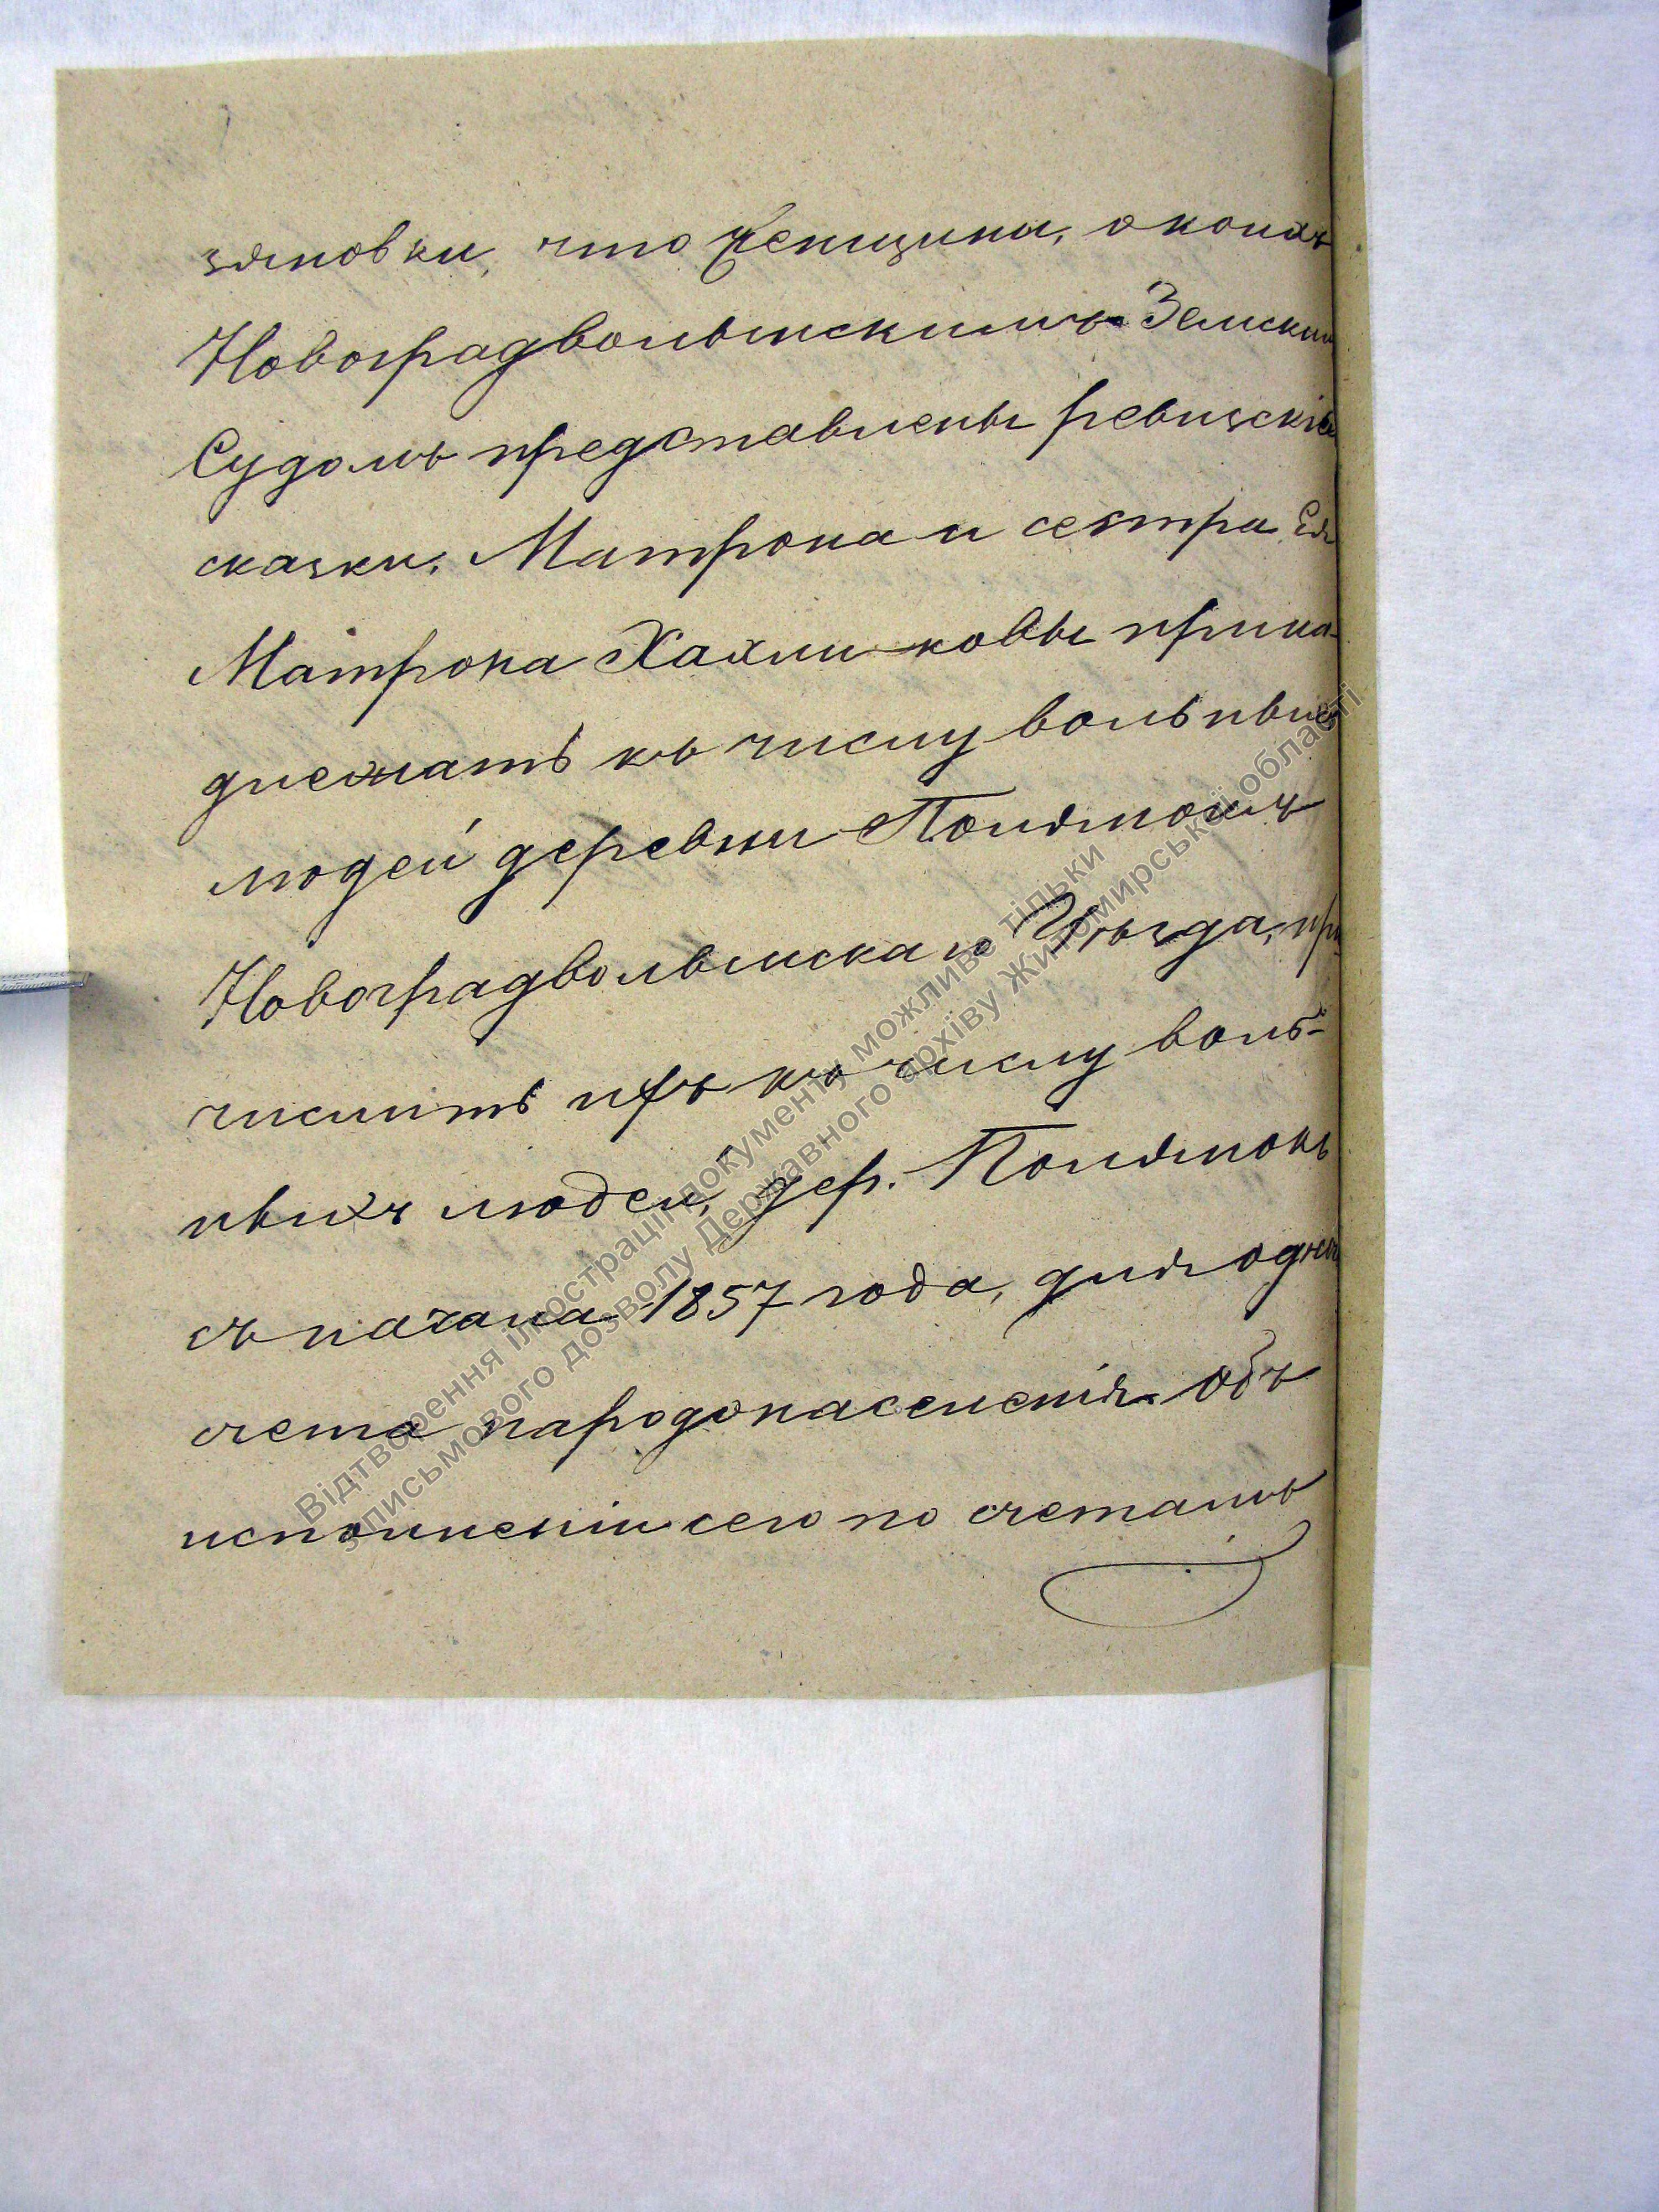 зяновки, что женщины, о коихъ
Новоградволынскимъ Земским
Судомъ представлены ревизскія
сказки, Матрона и сестра Ея
Матрона Хахлюковы прина-
длежатъ къ числу вольныхъ
людей деревни Полянокъ
Новоградволынскаго Уѣзда, при
числить ихъ къ числу воль-
ныхъ людей, дер. Полянокъ
съ начала 1857 года, для одного
счета народонаселенія. Объ
исполненіи сего по счетамъ
Відтворення ілюстрації документу можливе тільки
з письмового дозволу Державного архїву Житомирської області